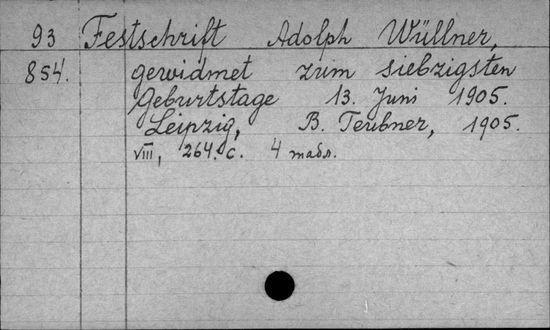 93 Festschrift Adolph Wüllner,
854. gewidmet zum siebzigsten
Geburtstage 13. Juni 1905.
Leipzig, B. Teubner, 1905.
VIII, 264. c. 4 табл.